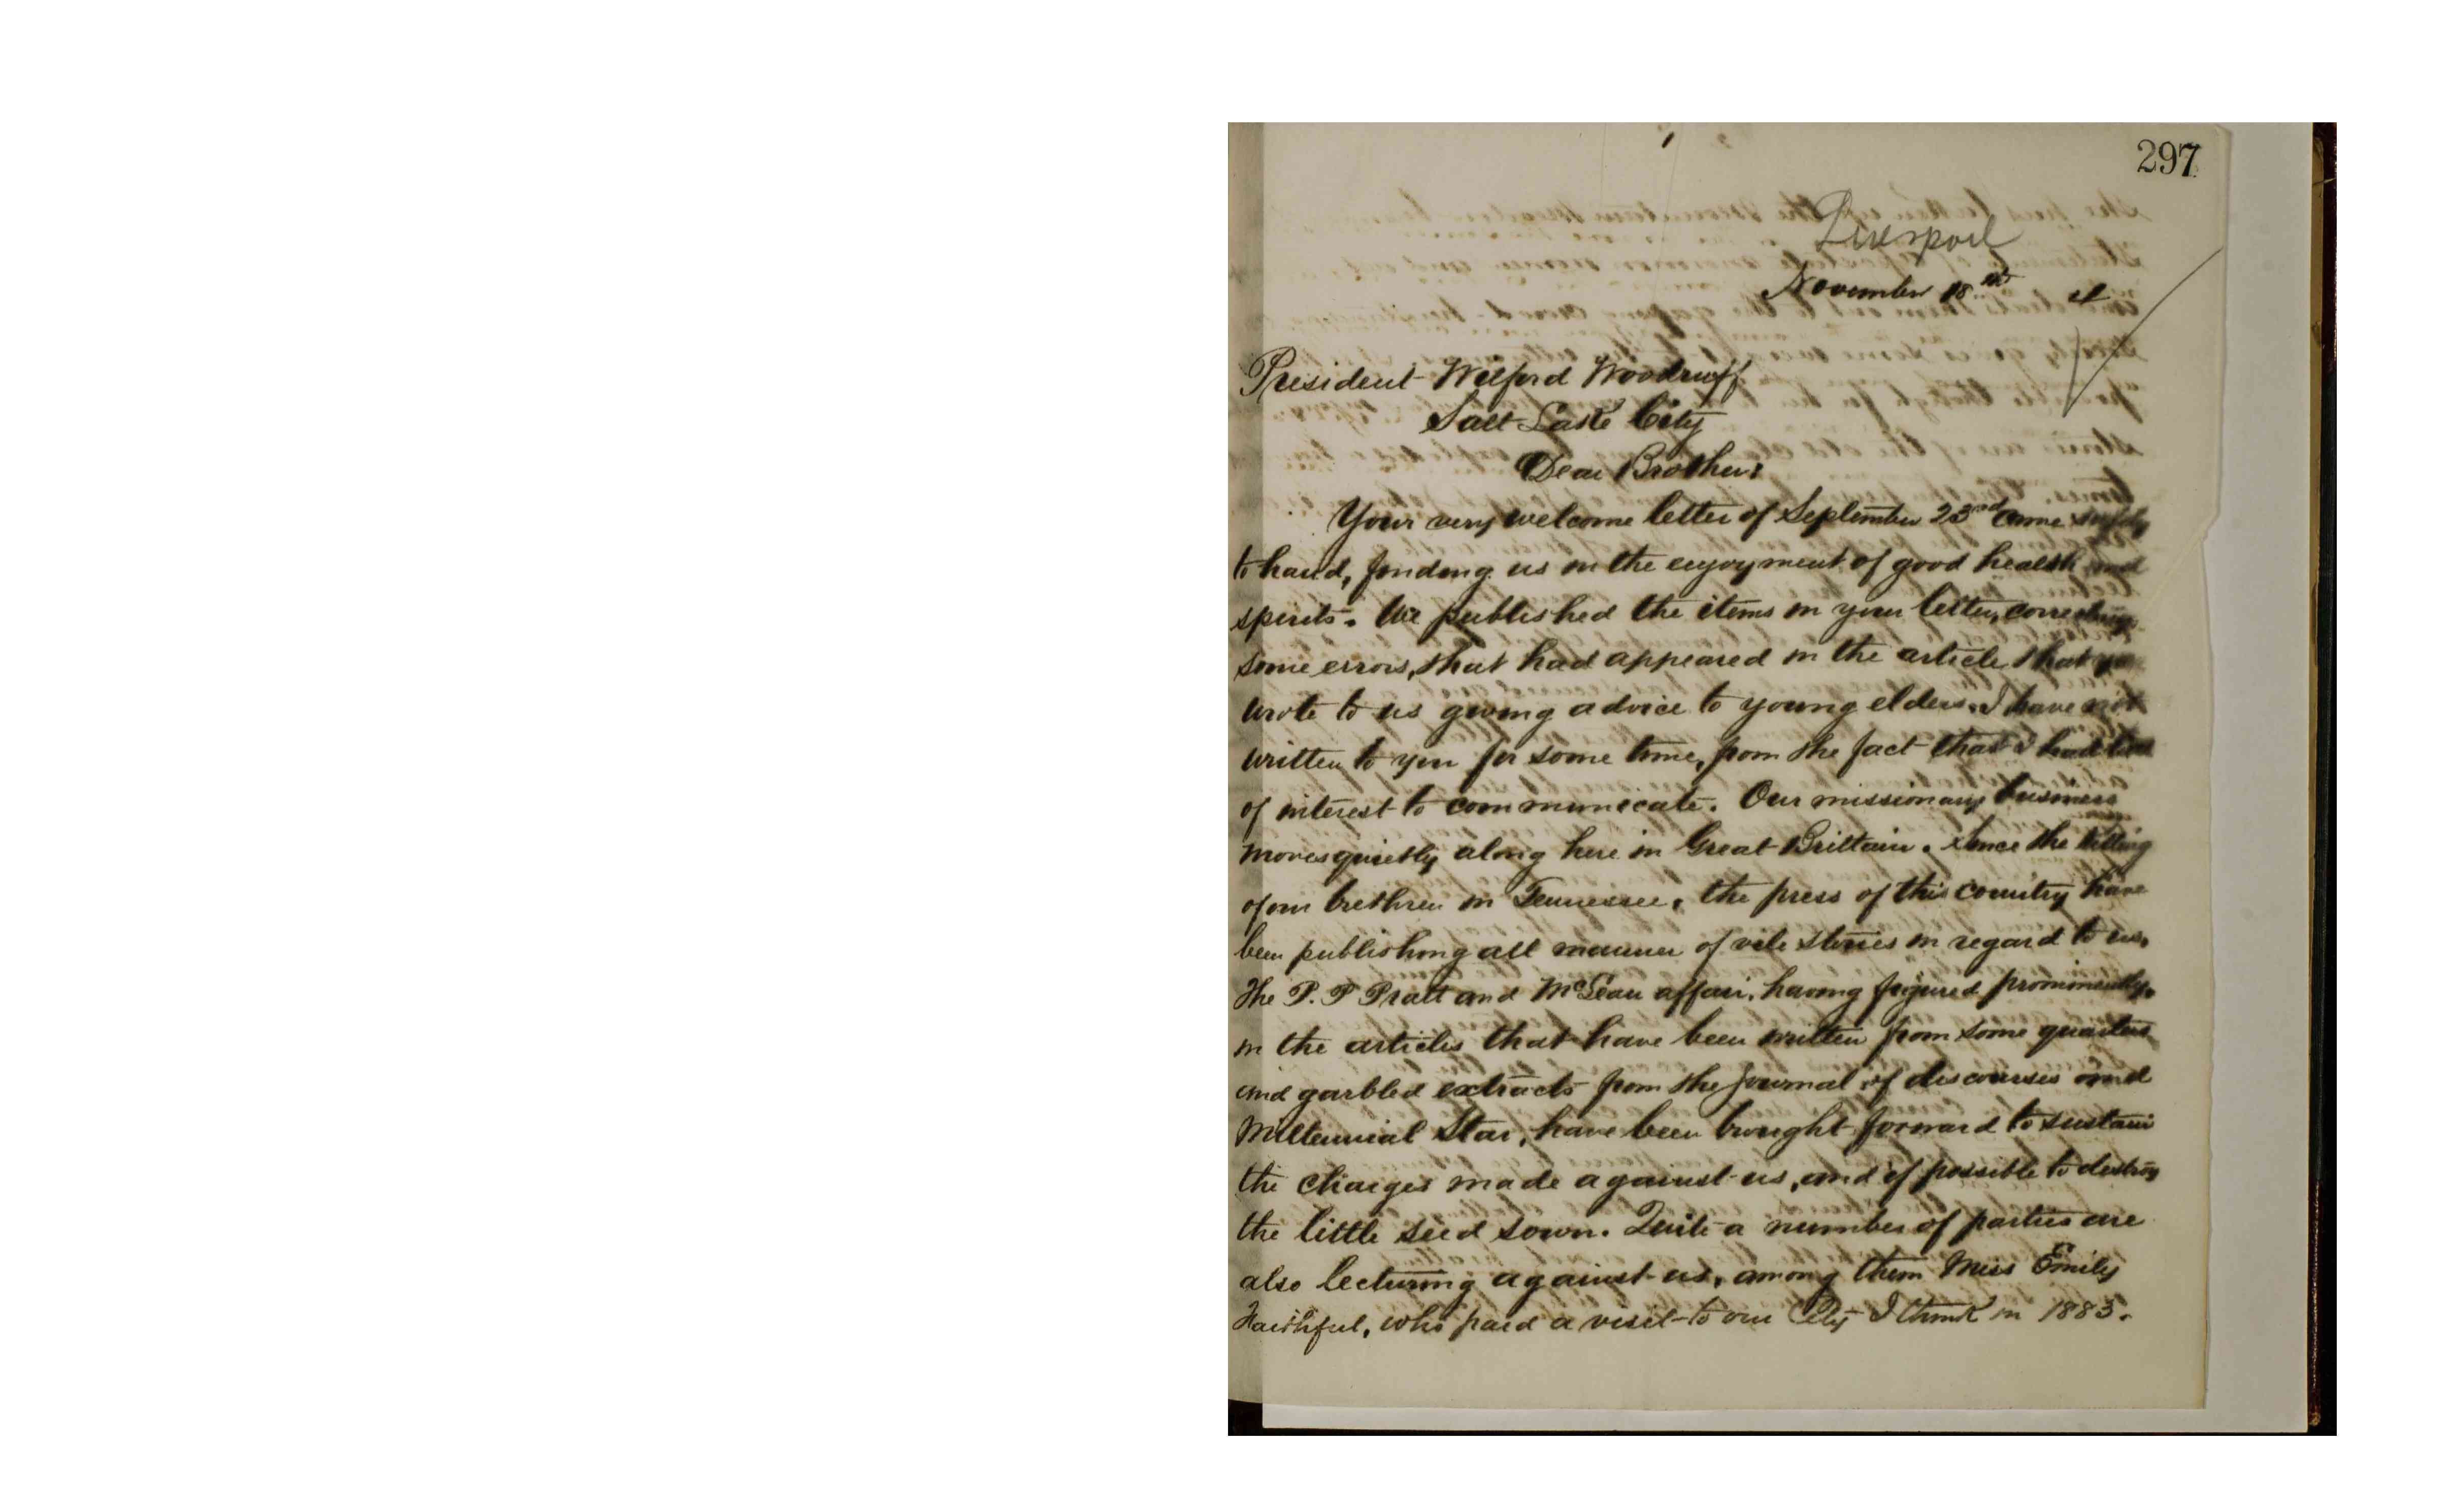 297
Liverpool
November 18th 4
President Wilford Woodruff
Salt Lake City
Dear Brother:
Your very welcome letter of September 23rd came safely
to hand, finding us in the enjoyment of good health and
spirits. We published the items in your letter, correcting
some errors, that had appeared in the article that you
wrote to us giving advice to young elders. I have not
written to you for some time, from the fact that I had little
of interest to communicate. Our missionary business
moves quietly along here in Great Brittain. Since the killing
of our brethren in Tennessee, the press of this country have
been publishing all manner of vile stories in regard to us,
the P. P Pratt and McLean affair, having figured prominently,
in the articles that have been written from some quarters
and garbled extracts from the journal of discourses and
Millennial Star, have been brought forward to sustain
the charges made against us, and if possible to destroy
the little seed sown. Quite a number of parties are
also lecturing against us, among them Miss Emily
Faithful, who paid a visit to our City I think in 1883.